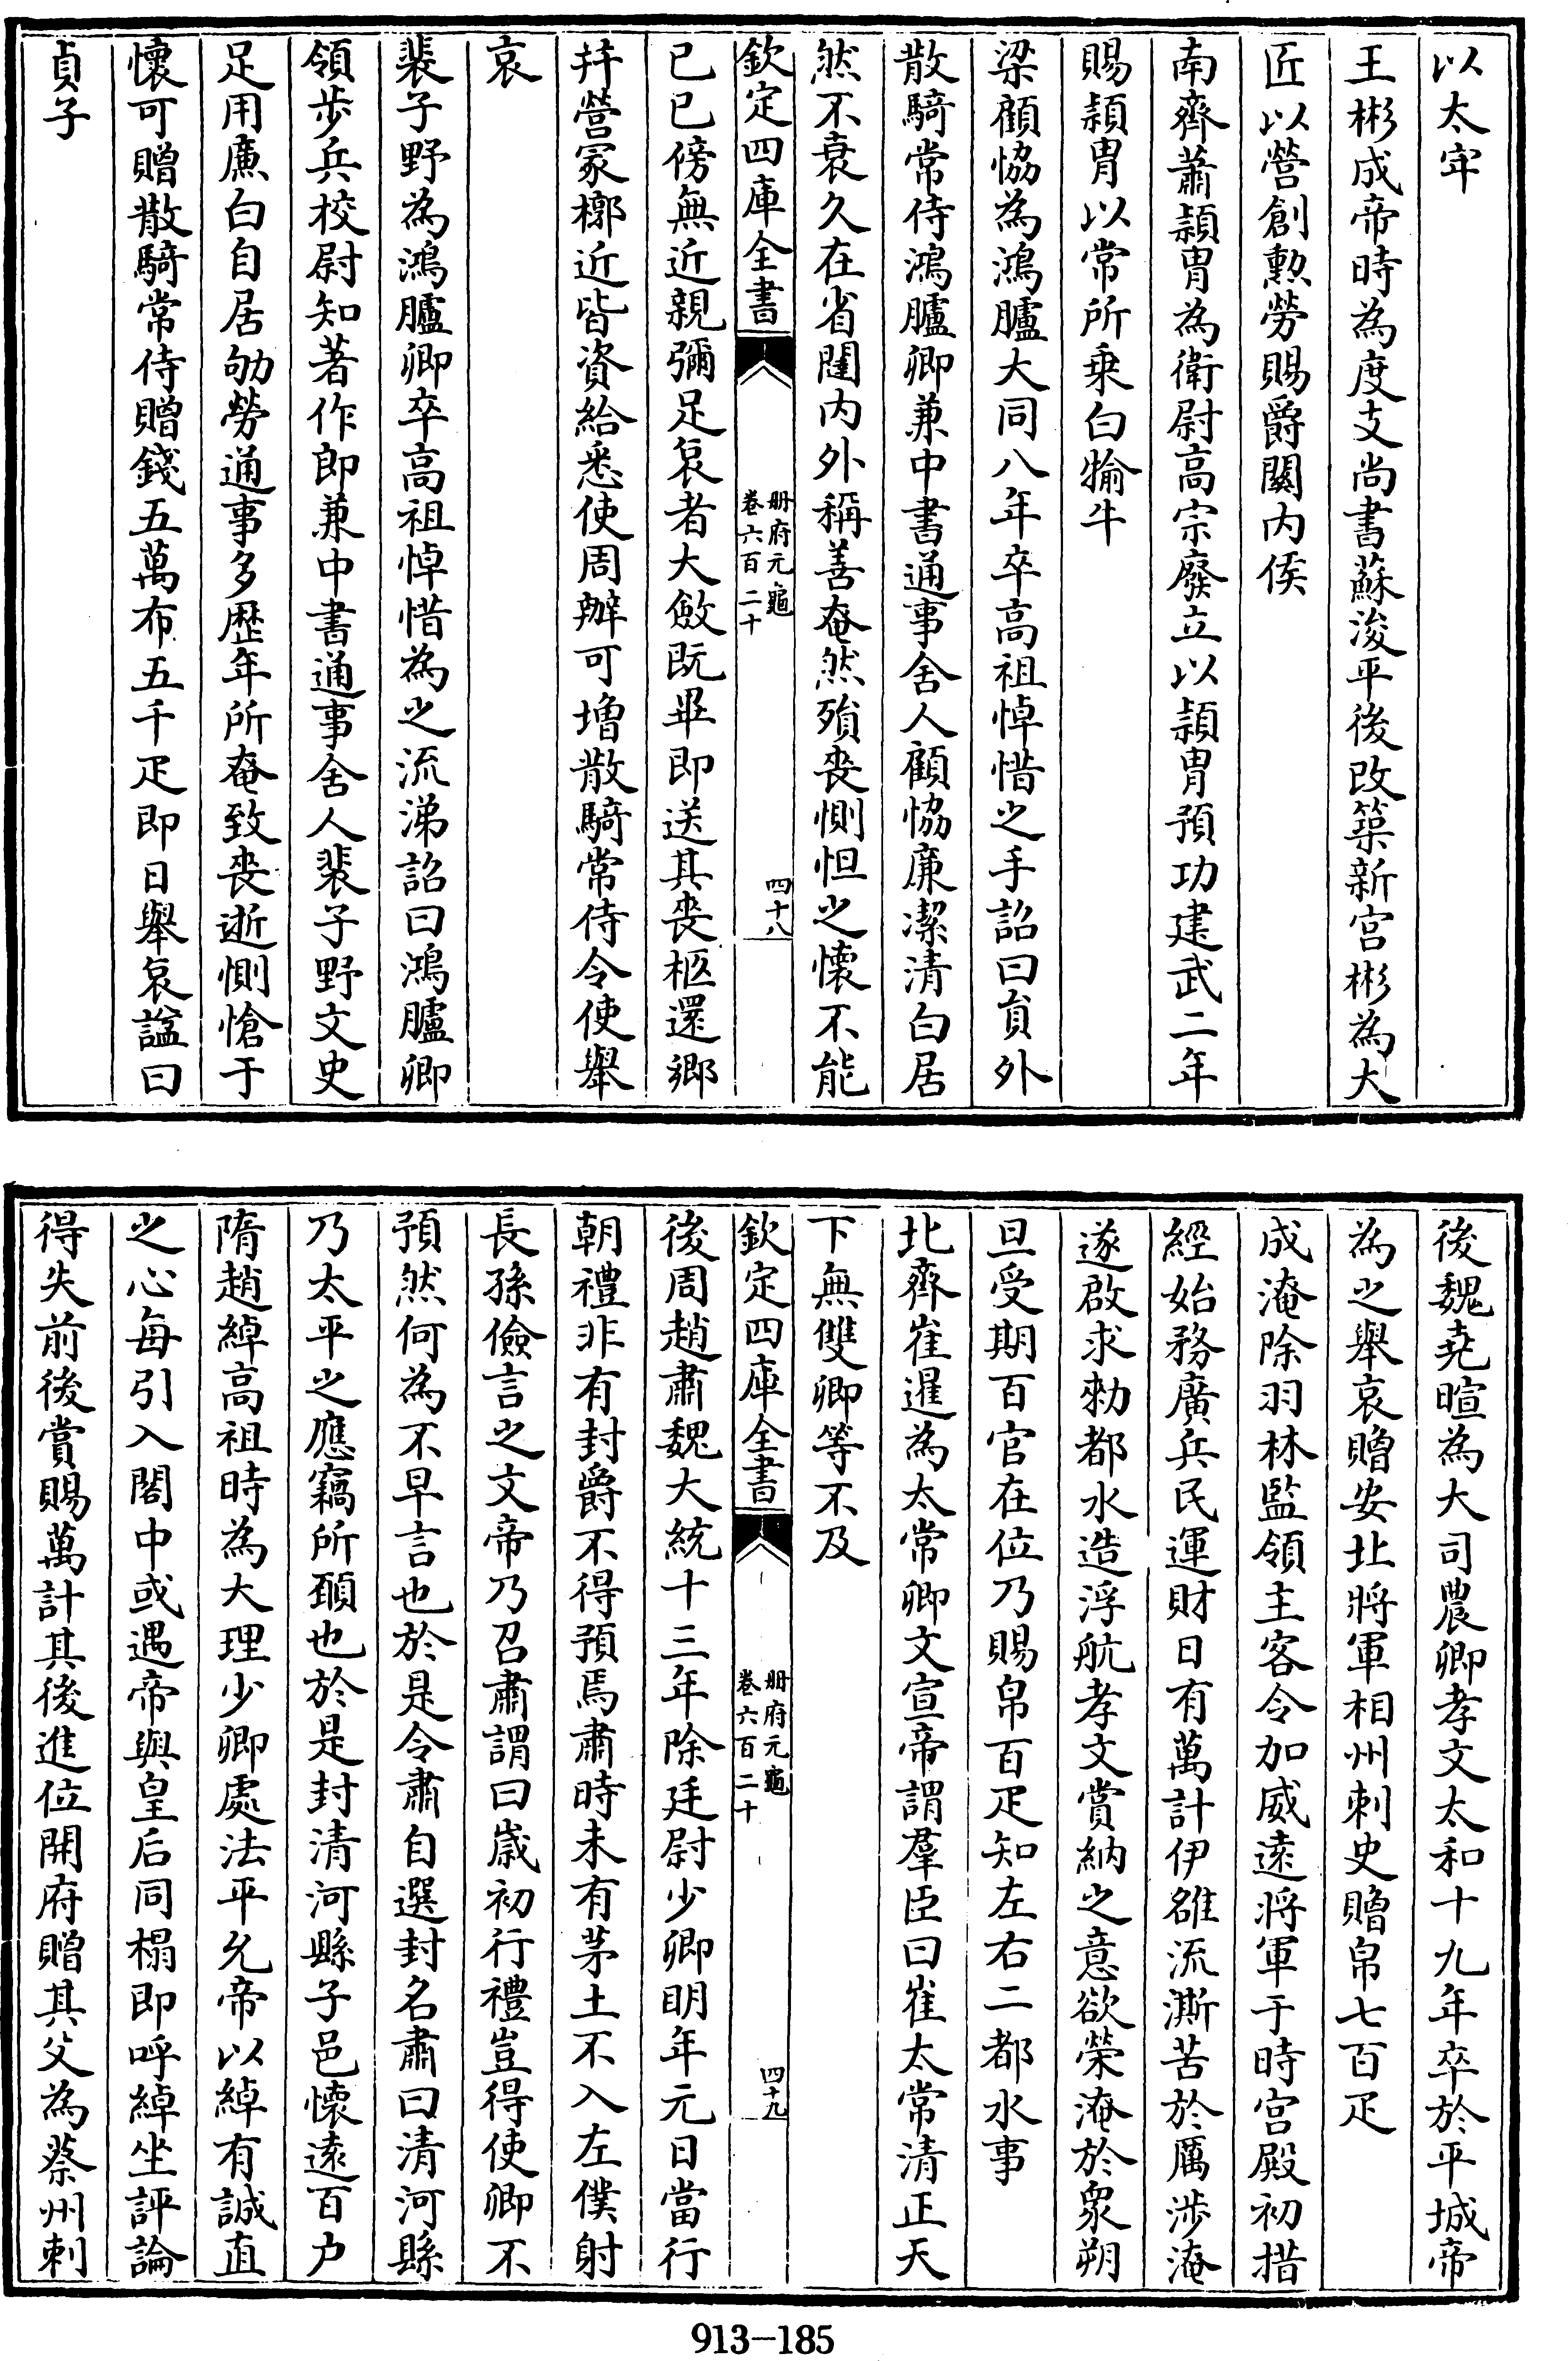 以太牢
王彬成帝時為度支尚書蘇浚平後改築新宫彬為大
匠以營創勲勞賜爵關内侯
南齊蕭頴胄為衛尉高宗廢立以頴胄預功建武二年
賜頴胄以常所乗白牏牛
梁顧協為鴻臚大同八年卒高祖悼惜之手詔曰貟外
散騎常侍鴻臚卿兼中書通事舍人顧協廉潔清白居
然不衰久在省闥内外稱善奄然殞丧惻怛之懷不能
欽定四庫全書
册府元龜
卷六百二十
四十八
已已傍無近親彌足哀者大斂既畢即送其丧柩還鄉
并營冢槨近皆資給悉使周辦可増散騎常侍令使舉
哀
裴子野為鴻臚卿卒高祖悼惜為之流涕詔曰鴻臚卿
領步兵校尉知著作郎兼中書通事舍人裴子野文史
足用廉白自居劬勞通事多歴年所奄致丧逝惻愴于
懷可贈散騎常侍贈錢五萬布五千疋即日舉哀諡曰
貞子
後魏堯暄為大司農卿孝文太和十九年卒於平城帝
為之舉哀贈安北將軍相州刺史贈帛七百疋
成淹除羽林監領主客令加威遠將軍于時宫殿初措
經始務廣兵民運財日有萬計伊雒流澌苦於厲涉淹
遂啟求勑都水造浮航孝文賞納之意欲榮淹於衆朔
旦受期百官在位乃賜帛百疋知左右二都水事
北齊崔暹為太常卿文宣帝謂羣臣曰崔太常清正天
下無雙卿等不及
欽定四庫全書
册府元龜
卷六百二十
四十九
後周趙肅魏大統十三年除廷尉少卿明年元日當行
朝禮非有封爵不得預焉肅時未有茅土不入左僕射
長孫儉言之文帝乃召肅謂曰歲初行禮豈得使卿不
預然何為不早言也於是令肅自選封名肅曰清河縣
乃太平之應竊所願也於是封清河縣子邑懷遠百户
隋趙綽高祖時為大理少卿處法平允帝以綽有誠直
之心毎引入閤中或遇帝與皇后同榻即呼綽坐評論
得失前後賞賜萬計其後進位開府贈其父為蔡州刺
913-185